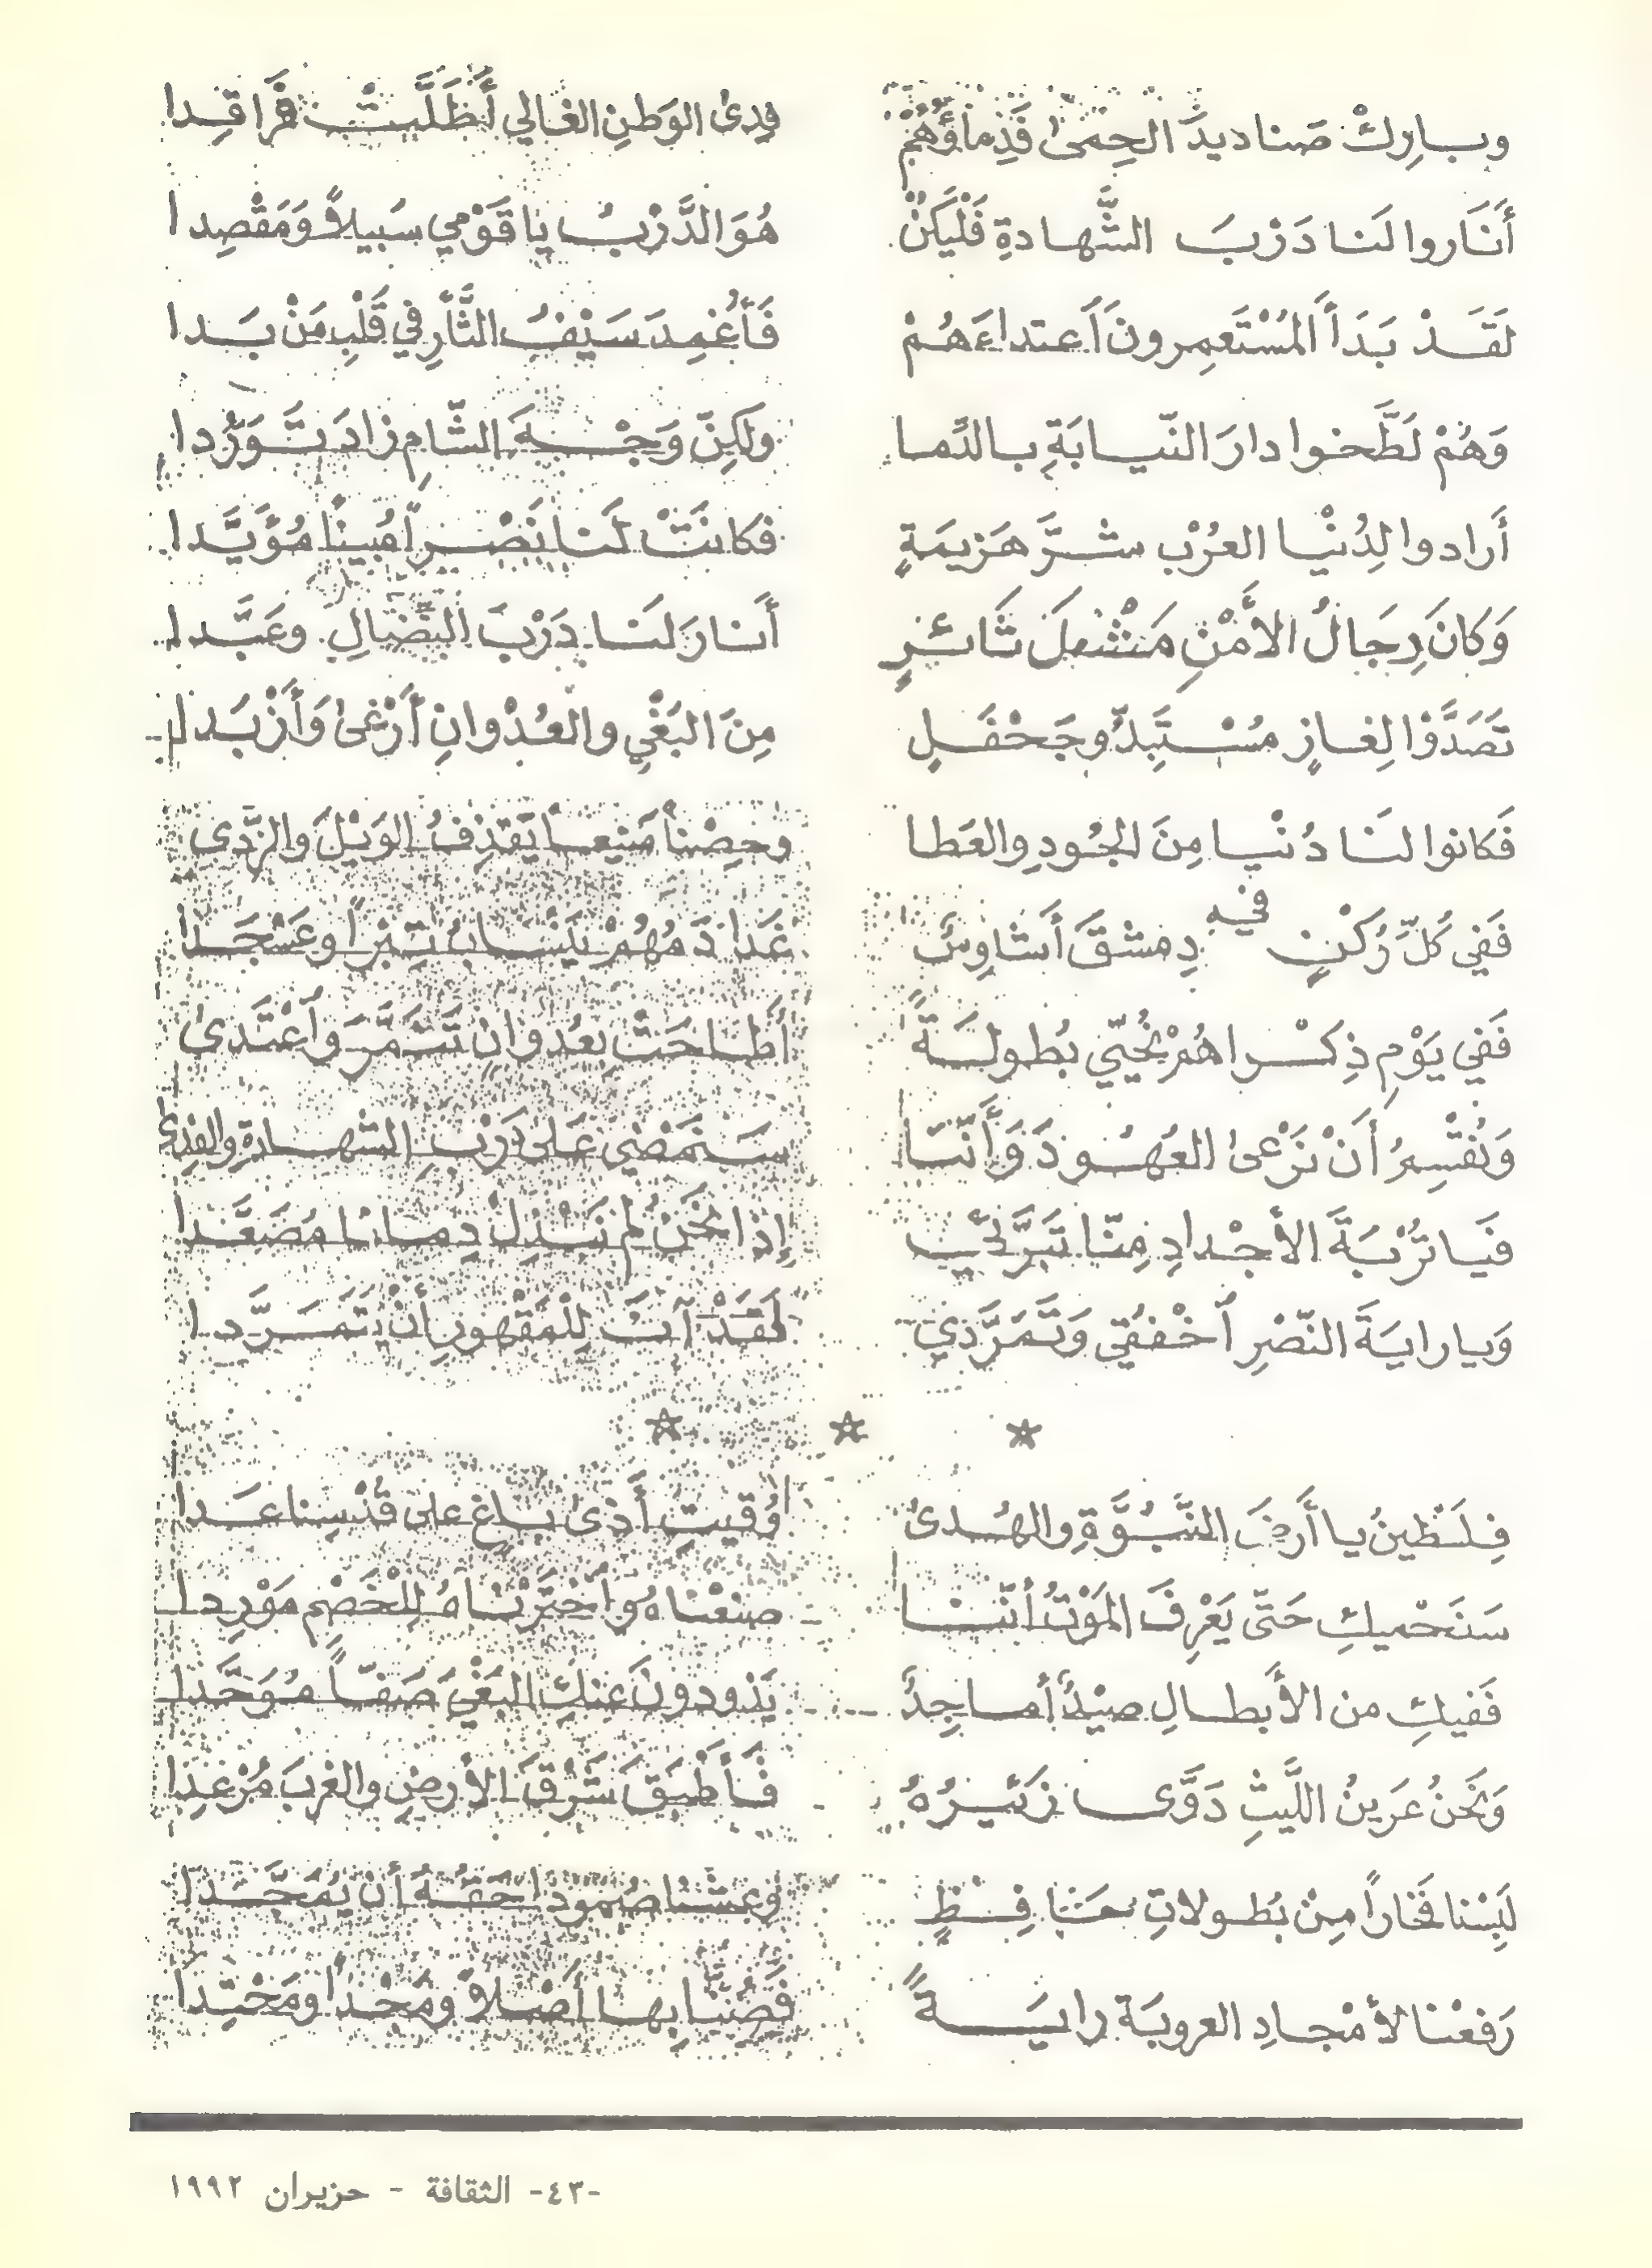 وبـارِكْ صَناديدَ الحِمىٰ فَدِماؤُهُمْ فِدىٰ الوَطَنِ الغَالي أَظَلَّتْ فَرَاقِدا
أَنَاروا لَنا دَرْبَ الشَّهادةِ فَلْيَكُنْ هُوَ الدَّرْبُ يا قَوْمي سَبيلاً وَمَقْصِدا
لَقَدْ بَدَأَ المُسْتَعمِرونَ اَعتداءَهُمْ فَأُغمِدَ سَيْفُ الثَّأرِ في قَلْبِ مَنْ بَدا
وَهُمْ لَطَّخوا دارَ النّيابَةِ بالدِّما ولكِنّ وَجْهَ الشّامِ زادَ تَوَرُّدا
أَرادوا لِدُنْيا العُرْبِ شَرَّ هَزيمَةٍ فكانَتْ لَنا نَصْراً مُبيناً مُؤَيَّدا
وَكانَ رِجَالُ الأَمْنِ مَشْعلَ ثَائرٍ أَنارَ لَنا دَرْبَ النِّضالِ وعَبَّدا
تَصَدَّوْا لِغازٍ مُسْتَبِدٍّ وجَحْفَلٍ مِنَ البَغْيِ والعُدْوانِ أَرْغىٰ وَأَزْبَدا
فَكانوا لنَا دُنْيا مِنَ الجُودِ والعَطا وحِصْناً مَنيعاً يَقذِفُ الوَيْلَ والرَّدى
فَفي كُلّ رُكْنٍ فيه دِمشقَ أَشاوِسٌ غَدا دَمُهُمْ يَنْسابُ تِبْراً وعَسْجَدا
فَفي يَوْمِ ذِكْراهُمْ نُحَيّي بُطولَةً أَطاحَتْ بعُدوانٍ تَنَمَّرَ وَاَعْتَدىٰ
وَنُقْسِمُ أَنْ نَرْعىٰ العُهُودَ وَأَنّنَا سَنَمْضي عَلى دَرْبِ الشَّهادةِ والفِدىٰ
فَيا تُرْبَةَ الأَجْدادِ مِنّا تَبَرَّئي إِذا نَحْنُ لم نَبْذِلْ دِمانا مُصَعَّدا
وَيا رايَةَ النّصْرِ اَخْفُقي وَتَمَرَّدي لَقَدْ آنَ لِلْمَقْهورِ أَنْ يَتَمَرَّدا
☆ ☆ ☆
فِلَسْطينُ يا أَرضَ النُّبُوَّةِ والهُدىٰ وُقيتِ أَذىٰ باغٍ على قُدْسِنا عَدا
سَنَحْميكِ حَتّى يَعْرِفَ المَوْتُ أَنّنا صنعْناهُ وَاَخْتَرْناهُ لِلْخَصْمِ مَوْرِدا
فَفيكِ من الأَبطالِ صيْدٌ أَماجِدٌ يَذودونَ عنكِ البَغْيَ صَفّاً مُوَحَّدا
وَنَحنُ عَرينُ اللَّيثِ دَوَّى زئيرُهُ فَأَطبَقَ شَرْقَ الأَرضِ والغربَ مُرْعِدا
لَبِسْنا فَخاراً مِنْ بُطولاتِ حَافِظٍ وَعِشْنا صُموداً حَقُّهُ أَنْ يُمَجَّدا
رَفعْنا لأَمْجادِ العروبَة رايَةً فَصُنّا بِها أَصْلاً ومَجْداً ومَحْتِدا
-٤٣- الثقافة - حزيران ١٩٩٢